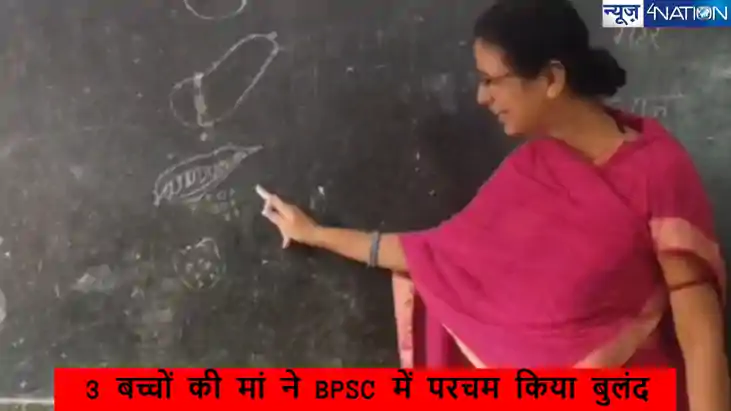 न्यूज़ 4NATION
3 बच्चों की मां ने BPSC में परचम किया बुलंद